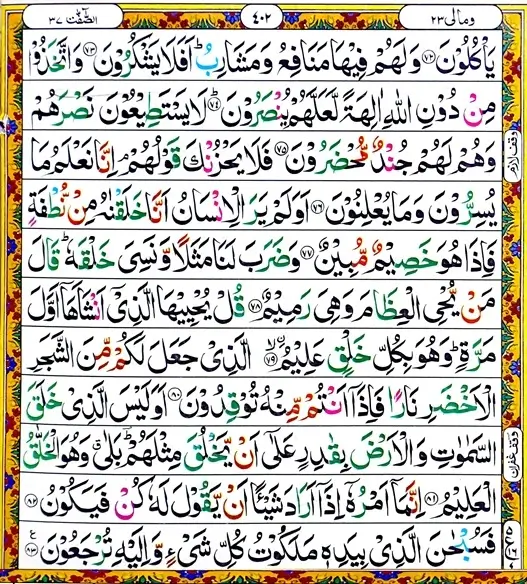 ومالی ٢٣ ٤٠٢ الصّٰٓفّٰت ٣٧
يَاۡكُلُوۡنَ ﴿٧٢﴾ وَلَهُمۡ فِيۡهَا مَنَافِعُ وَمَشَارِبُ ؕ اَفَلَا يَشۡكُرُوۡنَ ﴿٧٣﴾ وَاتَّخَذُوۡا
مِنۡ دُوۡنِ اللّٰهِ اٰلِهَةً لَّعَلَّهُمۡ يُنۡصَرُوۡنَ ﴿٧٤﴾ لَا يَسۡتَطِيۡعُوۡنَ نَصۡرَهُمۡ
وَهُمۡ لَهُمۡ جُنۡدٌ مُّحۡضَرُوۡنَ ﴿٧٥﴾ فَلَا يَحۡزُنۡكَ قَوۡلُهُمۡ ۘ اِنَّا نَعۡلَمُ مَا
يُسِرُّوۡنَ وَمَا يُعۡلِنُوۡنَ ﴿٧٦﴾ اَوَلَمۡ يَرَ الۡاِنۡسَانُ اَنَّا خَلَقۡنٰهُ مِنۡ نُّطۡفَةٍ
فَاِذَا هُوَ خَصِيۡمٌ مُّبِيۡنٌ ﴿٧٧﴾ وَضَرَبَ لَنَا مَثَلًا وَّنَسِىَ خَلۡقَهٗ ؕ قَالَ
مَنۡ يُّحۡىِ الۡعِظَامَ وَهِىَ رَمِيۡمٌ ﴿٧٨﴾ قُلۡ يُحۡيِيۡهَا الَّذِىۡۤ اَنۡشَاَهَاۤ اَوَّلَ
مَرَّةٍ ؕ وَهُوَ بِكُلِّ خَلۡقٍ عَلِيۡمُۙ ﴿٧٩﴾ الَّذِىۡ جَعَلَ لَكُمۡ مِّنَ الشَّجَرِ
الۡاَخۡضَرِ نَارًا فَاِذَاۤ اَنۡتُمۡ مِّنۡهُ تُوۡقِدُوۡنَ ﴿٨٠﴾ اَوَلَيۡسَ الَّذِىۡ خَلَقَ
السَّمٰوٰتِ وَالۡاَرۡضَ بِقٰدِرٍ عَلٰٓى اَنۡ يَّخۡلُقَ مِثۡلَهُمۡ ؕ بَلٰى وَهُوَ الۡخَلّٰقُ
الۡعَلِيۡمُ ﴿٨١﴾ اِنَّمَاۤ اَمۡرُهٗۤ اِذَاۤ اَرَادَ شَيۡـًٔا اَنۡ يَّقُوۡلَ لَهٗ كُنۡ فَيَكُوۡنُ ﴿٨٢﴾
فَسُبۡحٰنَ الَّذِىۡ بِيَدِهٖ مَلَكُوۡتُ كُلِّ شَىۡءٍ وَّاِلَيۡهِ تُرۡجَعُوۡنَ ﴿٨٣﴾
وقف لازم
وقف غفران